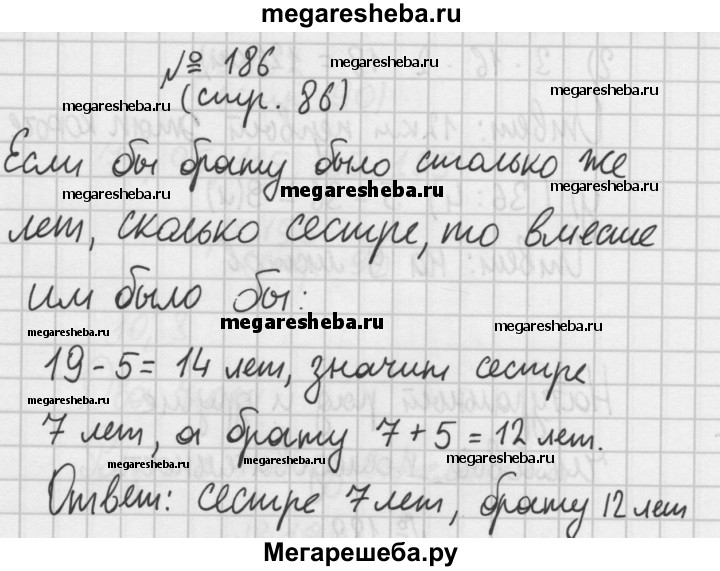 megaresheba.ru
№ 186
megaresheba.ru
megaresheba.ru
(стр. 86)
megaresheba.ru
Если бы брату было столько же
megaresheba.ru
megaresheba.ru
megaresheba.ru
лет, сколько сестре, то вместе
им было бы:
megaresheba.ru
megaresheba.ru
megaresheba.ru
19-5= 14 лет, значит сестре
megaresheba.ru
7 лет, а брату 7+5=12 лет.
megaresheba.ru
megaresheba.ru
megaresheba.ru
Ответ: сестре 7 лет, брату 12 лет
Мегарешеба.ру